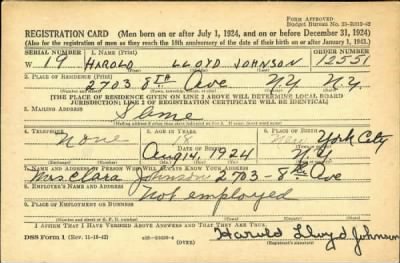 FORM APPROVED
REGISTRATION CARD (Men born on or after July 1, 1924, and on or before December 31, 1924)
(Also for the registration of men as they reach the 18th anniversary of the date of their birth on or after January 1, 1943.)
SERIAL NUMBER 1. NAME (Print) ORDER NUMBER
W 19 HAROLD LLOYD JOHNSON 12551
(First) (Middle) (Last)
2. PLACE OF RESIDENCE (Print)
2703 8TH Ave NY N.Y.
[THE PLACE OF RESIDENCE GIVEN ON LINE 2 ABOVE WILL DETERMINE LOCAL BOARD
JURISDICTION; LINE 2 OF REGISTRATION CERTIFICATE WILL BE IDENTICAL]
3. MAILING ADDRESS
Same
4. TELEPHONE 5. AGE IN YEARS 6. PLACE OF BIRTH
None 18 New York City
DATE OF BIRTH
Aug 14, 1924 N.Y.
7. NAME AND ADDRESS OF PERSON WHO WILL ALWAYS KNOW YOUR ADDRESS
Mrs. Clara Johnson 2703-8th Ave
8. EMPLOYER'S NAME AND ADDRESS
Not employed
9. PLACE OF EMPLOYMENT OR BUSINESS
I AFFIRM THAT I HAVE VERIFIED ABOVE ANSWERS AND THAT THEY ARE TRUE.
DSS Form 1 (Rev. 11-16-42) (OVER) Harold Lloyd Johnson
(Registrant's signature)